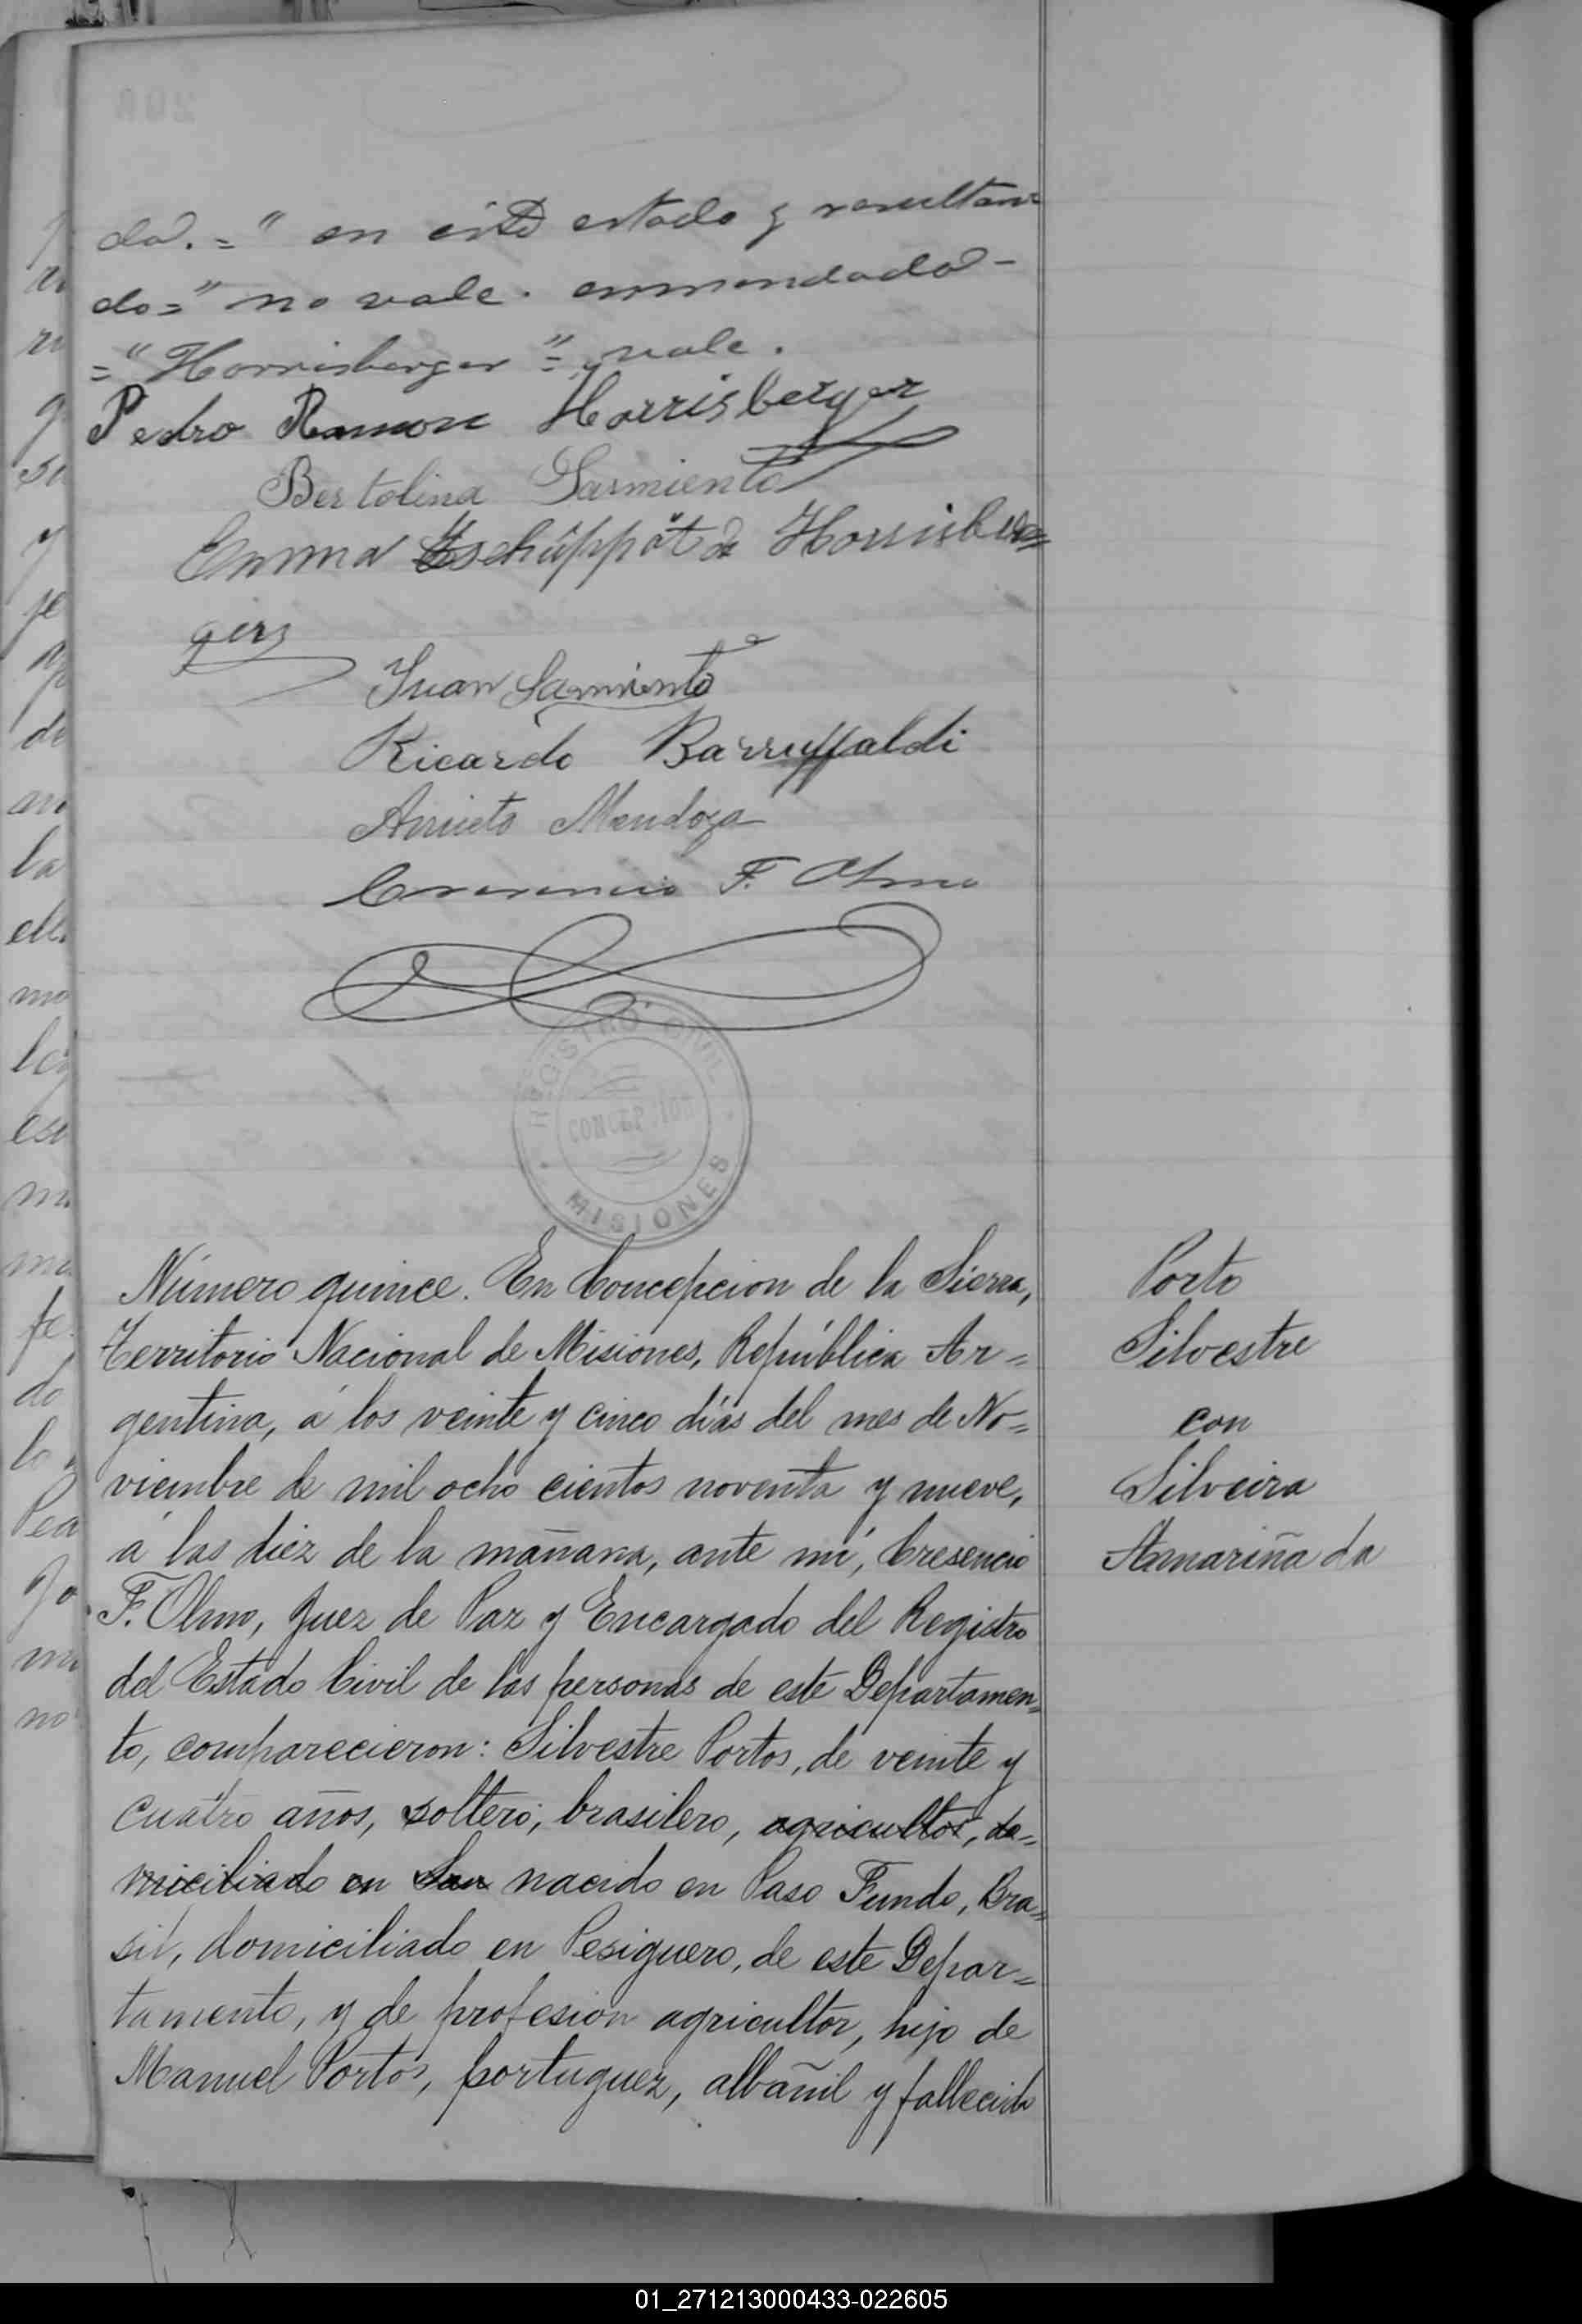 do. =" en este estado y resultan=
do=" no vale. enmendado-
="Horrisberger"= vale.
Pedro Ramon Horrisberger
Bertolina Sarmiento
Emma Tschäppät de Horrisber=
ger
Juan Sarmiento
Ricardo Barruffaldi
Aniceto Mendoza
Cresencio F. Olmo
REGISTRO CIVIL
CONCEPCION
MISIONES
Número quince. En Concepcion de la Sierra,
Territorio Nacional de Misiones, República Ar=
gentina, á los veinte y cinco días del mes de No=
viembre de mil ocho cientos noventa y nueve,
á las diez de la mañana, ante mí, Cresencio
F. Olmo, Juez de Paz y Encargado del Registro
del Estado Civil de las personas de este Departamen=
to, comparecieron: Silvestre Portos, de veinte y
cuatro años, soltero, brasilero, agricultor, do=
miciliado en San nacido en Paso Fundo, Bra=
sil, domiciliado en Pesiguero, de este Depar=
tamento, y de profesion agricultor, hijo de
Manuel Portos, portuguez, albañil y fallecido
Porto
Silvestre
con
Silveira
Amariña da
01_271213000433-022605